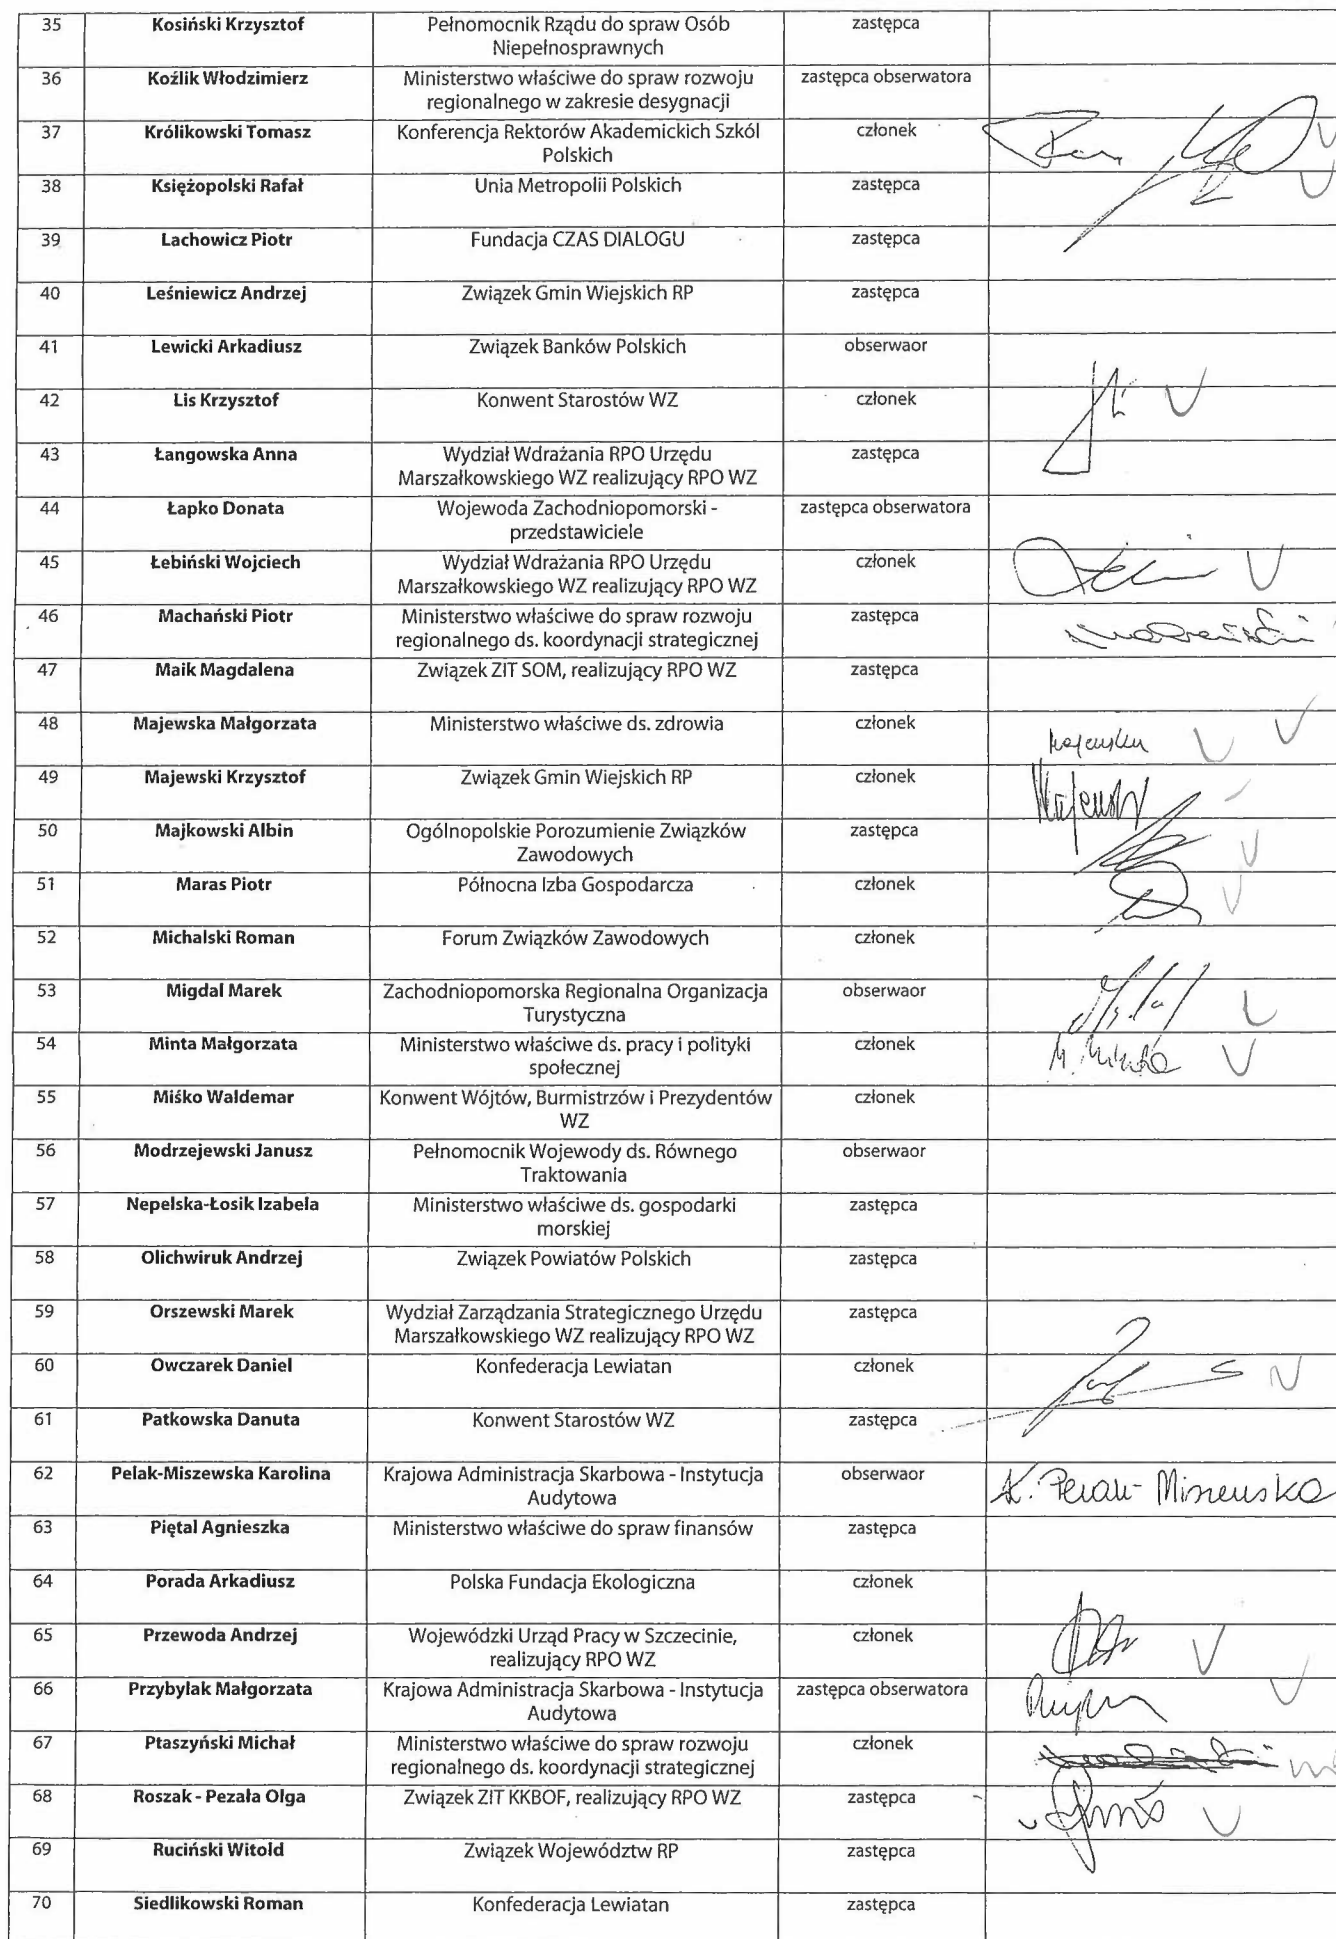 35 Kosiński Krzysztof Pełnomocnik Rządu do spraw Osób zastępca
Niepełnosprawnych
36 Koźlik Włodzimierz Ministerstwo właściwe do spraw rozwoju zastępca obserwatora
regionalnego w zakresie desygnacji
37 Królikowski Tomasz Konferencja Rektorów Akademickich Szkól członek
Polskich
38 Księżopolski Rafał Unia Metropolii Polskich zastępca
39 Lachowicz Piotr Fundacja CZAS DIALOGU zastępca
40 Leśniewicz Andrzej Związek Gmin Wiejskich RP zastępca
41 Lewicki Arkadiusz Związek Banków Polskich obserwaor
42 Lis Krzysztof Konwent Starostów WZ członek
43 Łangowska Anna Wydział Wdrażania RPO Urzędu zastępca
Marszałkowskiego WZ realizujący RPO WZ
44 Łapko Donata Wojewoda Zachodniopomorski - zastępca obserwatora
przedstawiciele
45 Łebiński Wojciech Wydział Wdrażania RPO Urzędu członek
Marszałkowskiego WZ realizujący RPO WZ
46 Machański Piotr Ministerstwo właściwe do spraw rozwoju zastępca
regionalnego ds. koordynacji strategicznej
47 Maik Magdalena Związek ZIT SOM, realizujący RPO WZ zastępca
48 Majewska Małgorzata Ministerstwo właściwe ds. zdrowia członek
49 Majewski Krzysztof Związek Gmin Wiejskich RP członek
50 Majkowski Albin Ogólnopolskie Porozumienie Związków zastępca
Zawodowych
51 Maras Piotr Północna Izba Gospodarcza członek
52 Michalski Roman Forum Związków Zawodowych członek
53 Migdal Marek Zachodniopomorska Regionalna Organizacja obserwaor
Turystyczna
54 Minta Małgorzata Ministerstwo właściwe ds. pracy i polityki członek
społecznej
55 Miśko Waldemar Konwent Wójtów, Burmistrzów i Prezydentów członek
WZ
56 Modrzejewski Janusz Pełnomocnik Wojewody ds. Równego obserwaor
Traktowania
57 Nepelska-Łosik Izabela Ministerstwo właściwe ds. gospodarki zastępca
morskiej
58 Olichwiruk Andrzej Związek Powiatów Polskich zastępca
59 Orszewski Marek Wydział Zarządzania Strategicznego Urzędu zastępca
Marszałkowskiego WZ realizujący RPO WZ
60 Owczarek Daniel Konfederacja Lewiatan członek
61 Patkowska Danuta Konwent Starostów WZ zastępca
62 Pelak-Miszewska Karolina Krajowa Administracja Skarbowa - Instytucja obserwaor K. Pelak-Miszewska
Audytowa
63 Piętal Agnieszka Ministerstwo właściwe do spraw finansów zastępca
64 Porada Arkadiusz Polska Fundacja Ekologiczna członek
65 Przewoda Andrzej Wojewódzki Urząd Pracy w Szczecinie, członek
realizujący RPO WZ
66 Przybylak Małgorzata Krajowa Administracja Skarbowa - Instytucja zastępca obserwatora
Audytowa
67 Ptaszyński Michał Ministerstwo właściwe do spraw rozwoju członek
regionalnego ds. koordynacji strategicznej
68 Roszak - Pezała Olga Związek ZIT KKBOF, realizujący RPO WZ zastępca
69 Ruciński Witold Związek Województw RP zastępca
70 Siedlikowski Roman Konfederacja Lewiatan zastępca